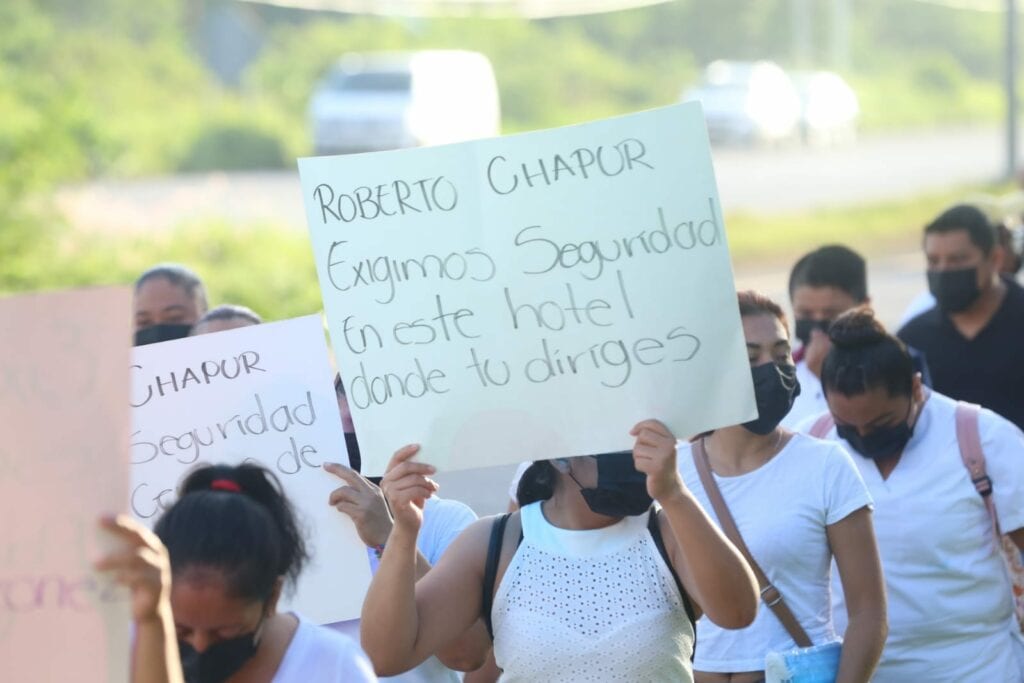 ROBERTO CHAPUR
Exigimos Seguridad
En este hotel
donde tu diriges
CHAPUR
Seguridad
de